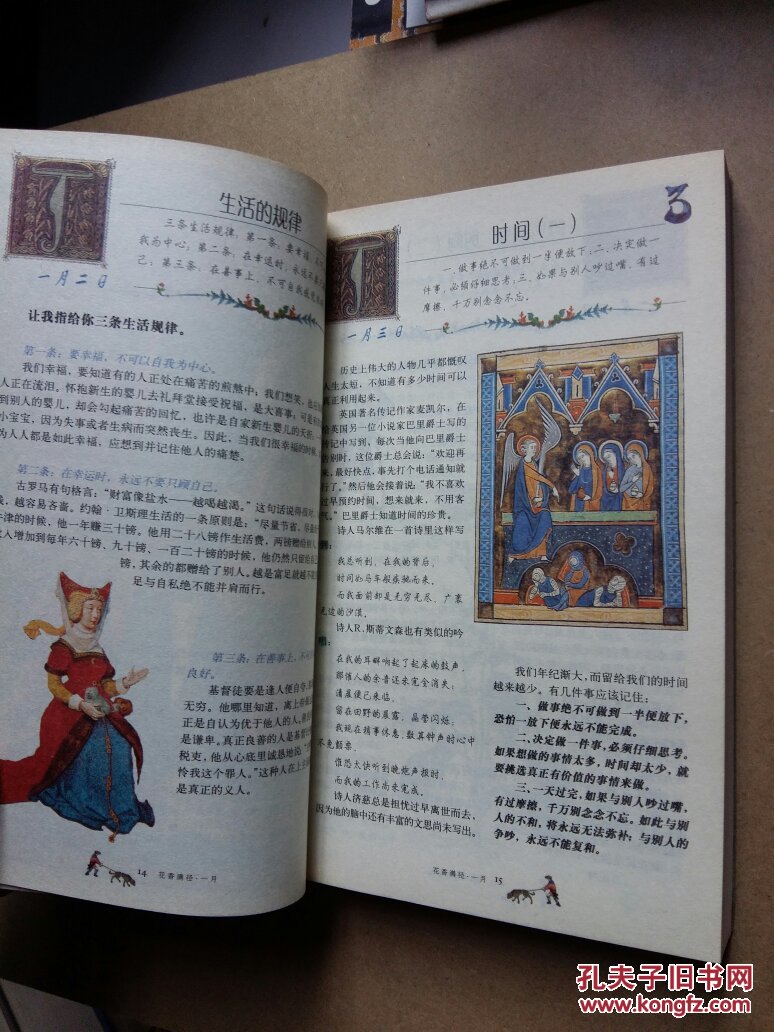 生活的规律
三条生活规律,第一条:要幸福,不可
我为中心;第二条:在幸运时,永远不要只
己;第三条:在善事上,不可自我感觉
一月二日
让我指给你三条生活规律。
第一条:要幸福,不可以自我为中心。
我们幸福,要知道有的人正处在痛苦的煎熬中;我们想笑,
人正在流泪。怀抱新生的婴儿去礼拜堂接受祝福,是大喜事;可是
到别人的婴儿,却会勾起痛苦的回忆,也许是自家新生婴儿的夭折,
小宝宝,因为失事或者生病而突然丧生。因此,当我们很幸福的时候,
为人人都是如此幸福,应想到并记住他人的痛楚。
第二条:在幸运时,永远不要只顾自己。
古罗马有句格言:“财富像盐水——越喝越渴。”这句话说得很对,
越容易吝啬。约翰·卫斯理生活的一条原则是:“尽量节省,尽量
牛津的时候,他一年赚三十镑。他用二十八镑作生活费,两镑赠给别
收入增加到每年六十镑、九十镑、一百二十镑的时候,他仍然只留
镑,其余的都赠给了别人。越是富足就越不能
足与自私绝不能并肩而行。
第三条:在善事上,不可
良好。
基督徒要是逢人便自夸,
无穷。他哪里知道,离上帝
正是自认为优于他人的人。
是谦卑。真正良善的人是基督
税吏,他从心底里诚恳地说:“
怜我这个罪人。”这种人在上
是真正的义人。
14 花香满径·一月
3
时间(一)
一、做事绝不可做到一半便放下;二、决定做一
件事,必须仔细思考;三、如果与别人吵过嘴、有过
摩擦,千万别念念不忘。
一月三日
历史上伟大的人物几乎都慨叹
人生太短,不知道有多少时间可以
真正利用起来。
英国著名传记作家麦凯尔,在
给英国另一位小说家巴里爵士写的
传记中写到,每次当他向巴里爵士
告别时,这位爵士总会说:“欢迎再
来。最好快点,事先打个电话通知就
行了。”然后他会接着说:“我不喜欢
过早预约时间,想来就来,不用客
气。”巴里爵士知道时间的珍贵。
诗人马尔维在一首诗里这样写
到:
我总听到,在我的背后,
时间如马车般疾驰而来,
而我面前却是无穷无尽、广袤
无边的沙漠。
诗人R.斯蒂文森也有类似的吟
唱:
在我的耳畔响起了起床的鼓声,
那催人的余音还未完全消失;
清晨便已来临。
留在田野的晨露,晶莹闪烁;
我现在稍事休息,数其钟声时心中
不免颤栗。
惟恐太快听到晚炮声报时,
而我的工作尚未完成。
诗人济慈总是担忧过早离世而去,
因为他的脑中还有丰富的文思尚未写出。
我们年纪渐大,而留给我们的时间
越来越少。有几件事应该记住:
一、做事绝不可做到一半便放下,
恐怕一放下便永远不能完成。
二、决定做一件事,必须仔细思考。
如果想做的事情太多,时间却太少,就
要挑选真正有价值的事情来做。
三、一天过完,如果与别人吵过嘴,
有过摩擦,千万别念念不忘。如此与别
人的不和,将永远无法弥补;与别人的
争吵,永远不能复和。
花香满径·一月 15
孔夫子旧书网
www.kongfz.com